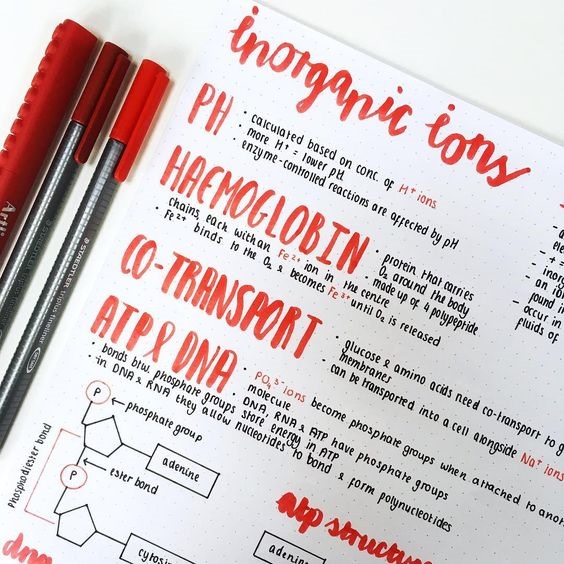 inorganic ions
PH
• calculated based on conc. of H⁺ ions
• more H⁺ = lower pH
enzyme-controlled reactions are affected by pH
HAEMOGLOBIN
• protein that carries
O₂ around the body
• made up of 4 polypeptide
chains, each with an Fe²⁺ ion in the centre
• Fe²⁺ binds to the O₂ & becomes Fe³⁺ until O₂ is released
CO-TRANSPORT
• glucose & amino acids need co-transport to
membranes
• can be transported into a cell alongside Na⁺ ions
ATP & DNA
• PO₄³⁻ ions become phosphate groups when attached to
molecule
• DNA, RNA & ATP have phosphate groups
• bonds btw. phosphate groups store energy in ATP
• in DNA & RNA they allow nucleotides to bond & form polynucleotides
P
phosphate group
adenine
phosphodiester bond
P
ester bond
cytosin
dna
atp structure
adenine
- +
inor
- an io
found in
- occur in
fluids of
Artli
STAEDTLER triplus fineliner
STAEDTLER